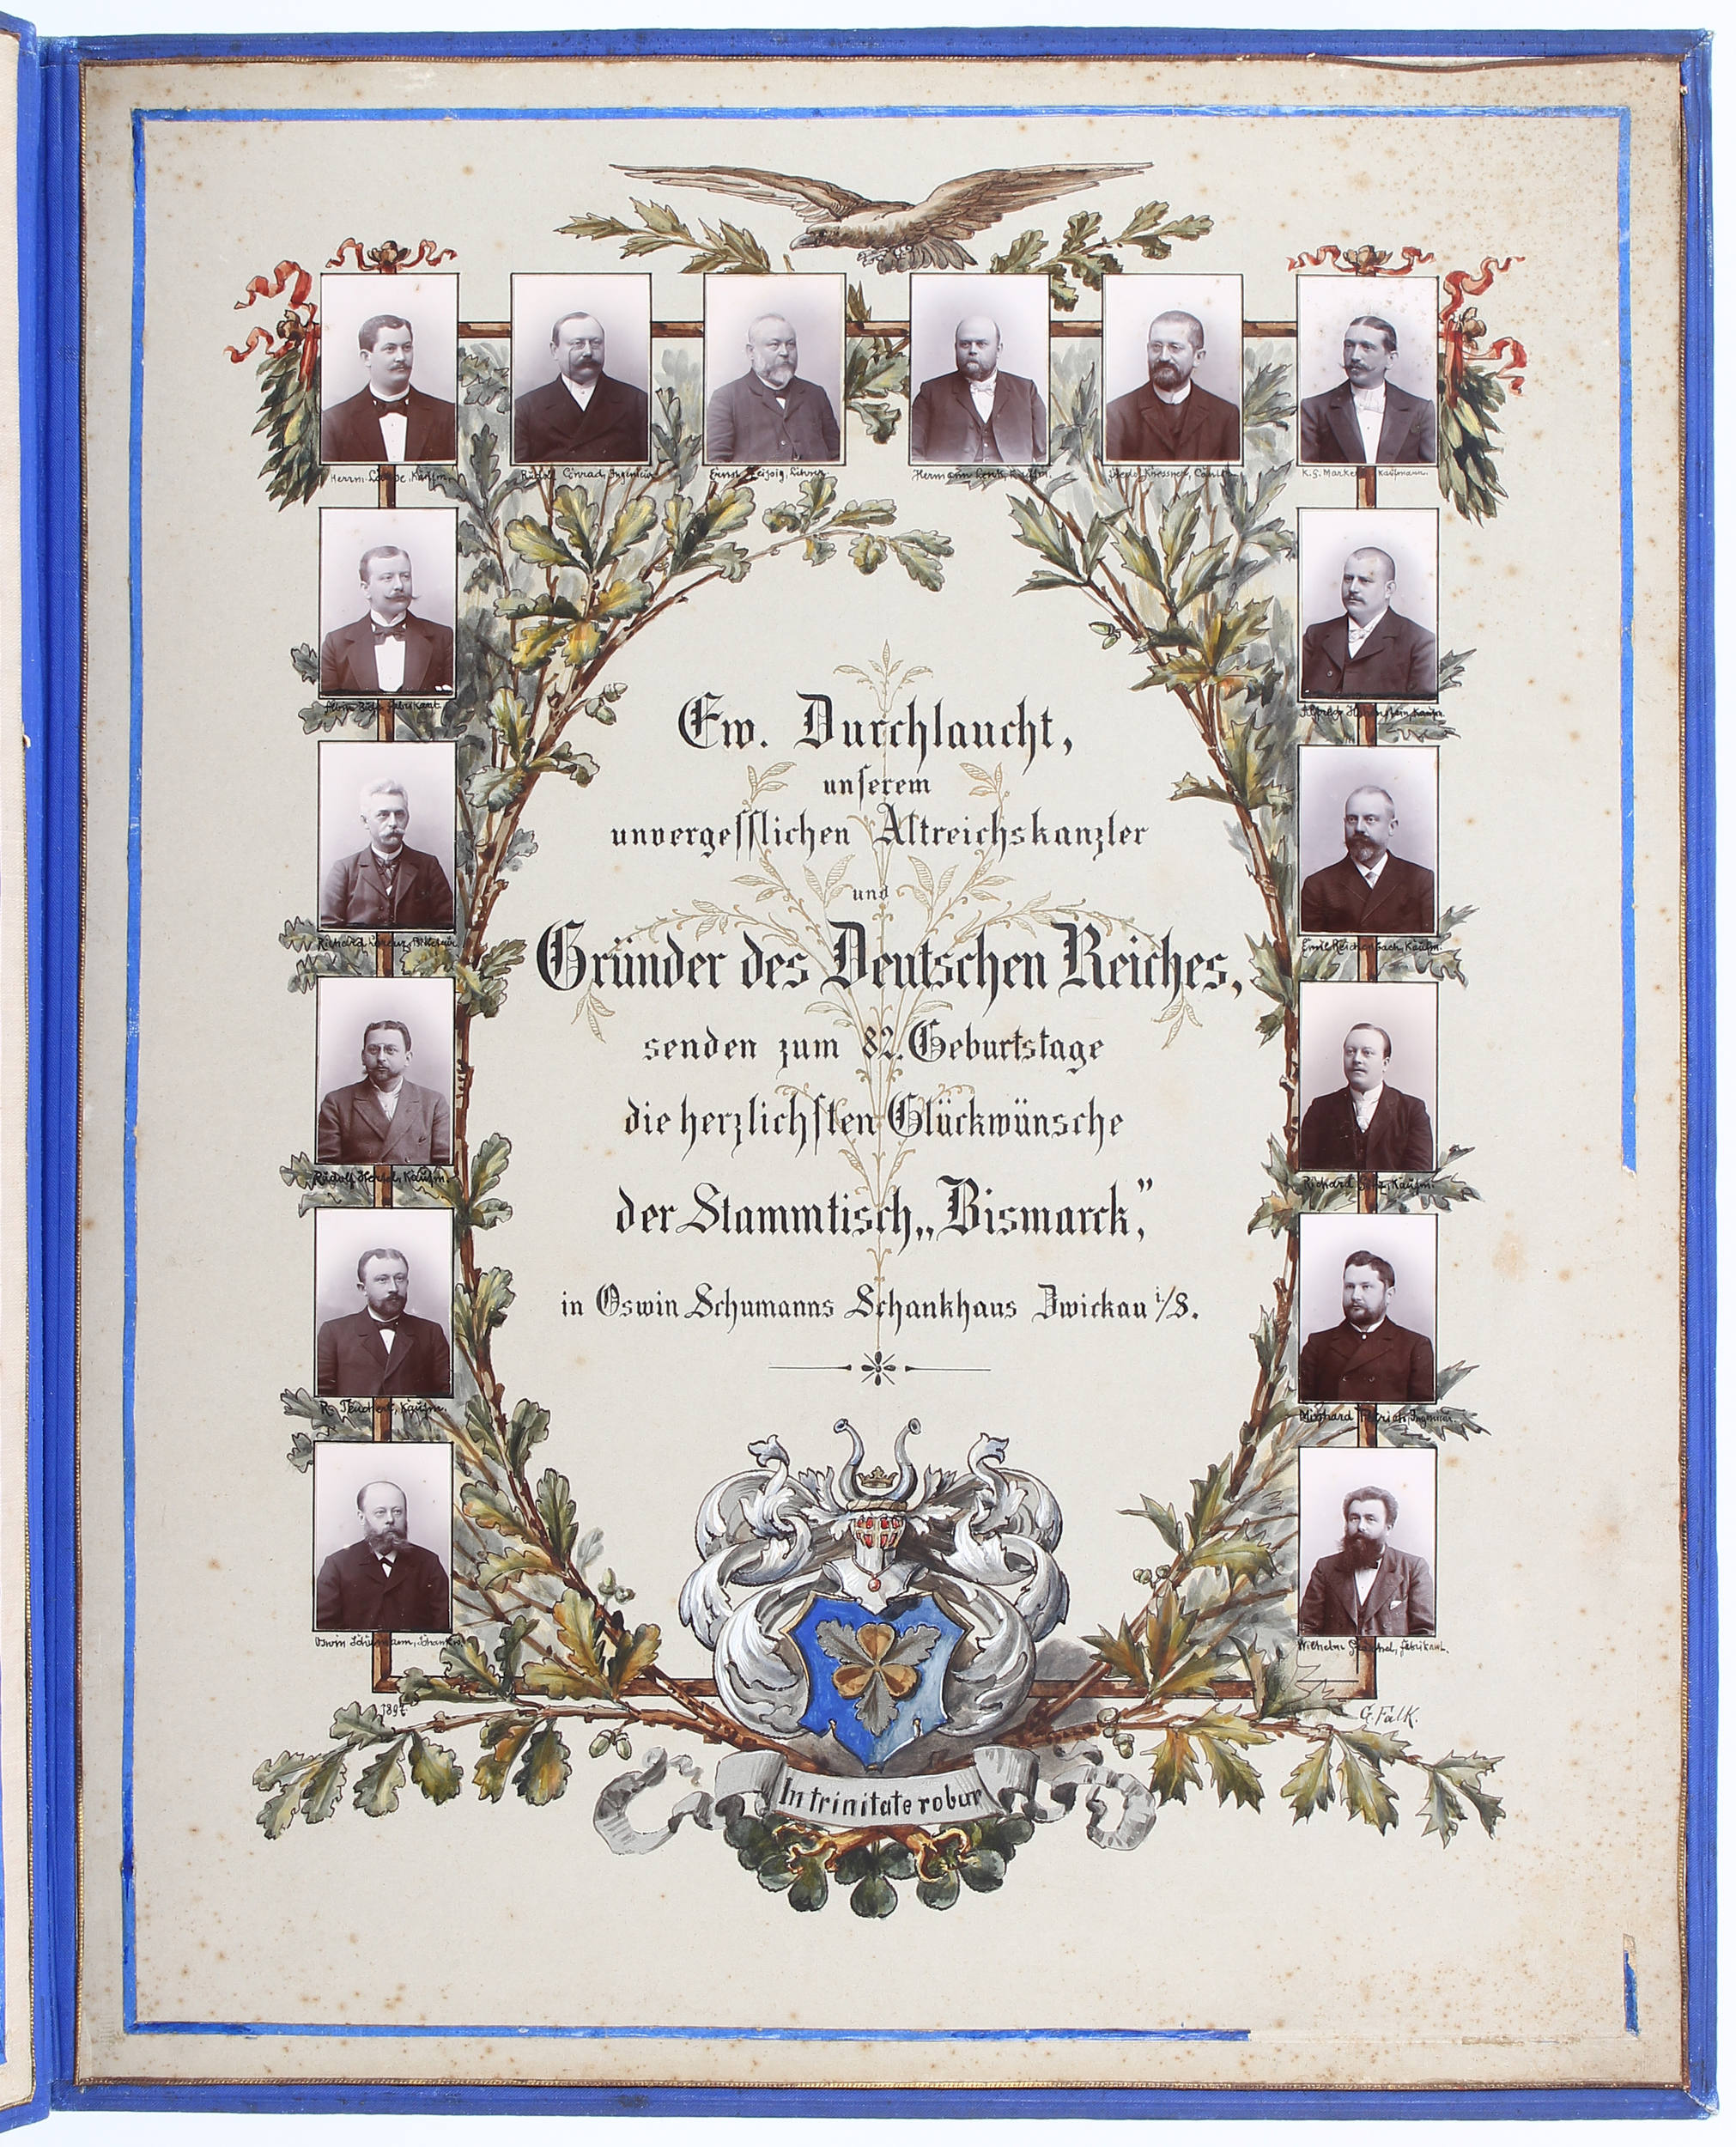 Herrm. Kaufm.
Rudolf Conrad, Ingenieur
Ernst Leipzig, Lehrer
Hermann Kaufm.
K. G. Markert Kaufmann.
Albin Fabrikant.
Alfred Kaufm.
Richard Lorenz,
Emil Reichenbach, Kaufm.
Rudolf Hertel, Kaufm.
Richard Kaufm.
R. Teuchert, Kaufm.
Ingenieur.
Oswin Schumann, Schankw.
Wilhelm Fabrikant.
Ew. Durchlaucht,
unserem
unvergeſſlichen Altreichskanzler
und
Gründer des Deutschen Reiches,
senden zum 82. Geburtstage
die herzlichſten Glückwünsche
der Stammtisch „Bismarck,"
in Oswin Schumanns Schankhaus Zwickau i./S.
1897.
G. Falk.
In trinitate robur